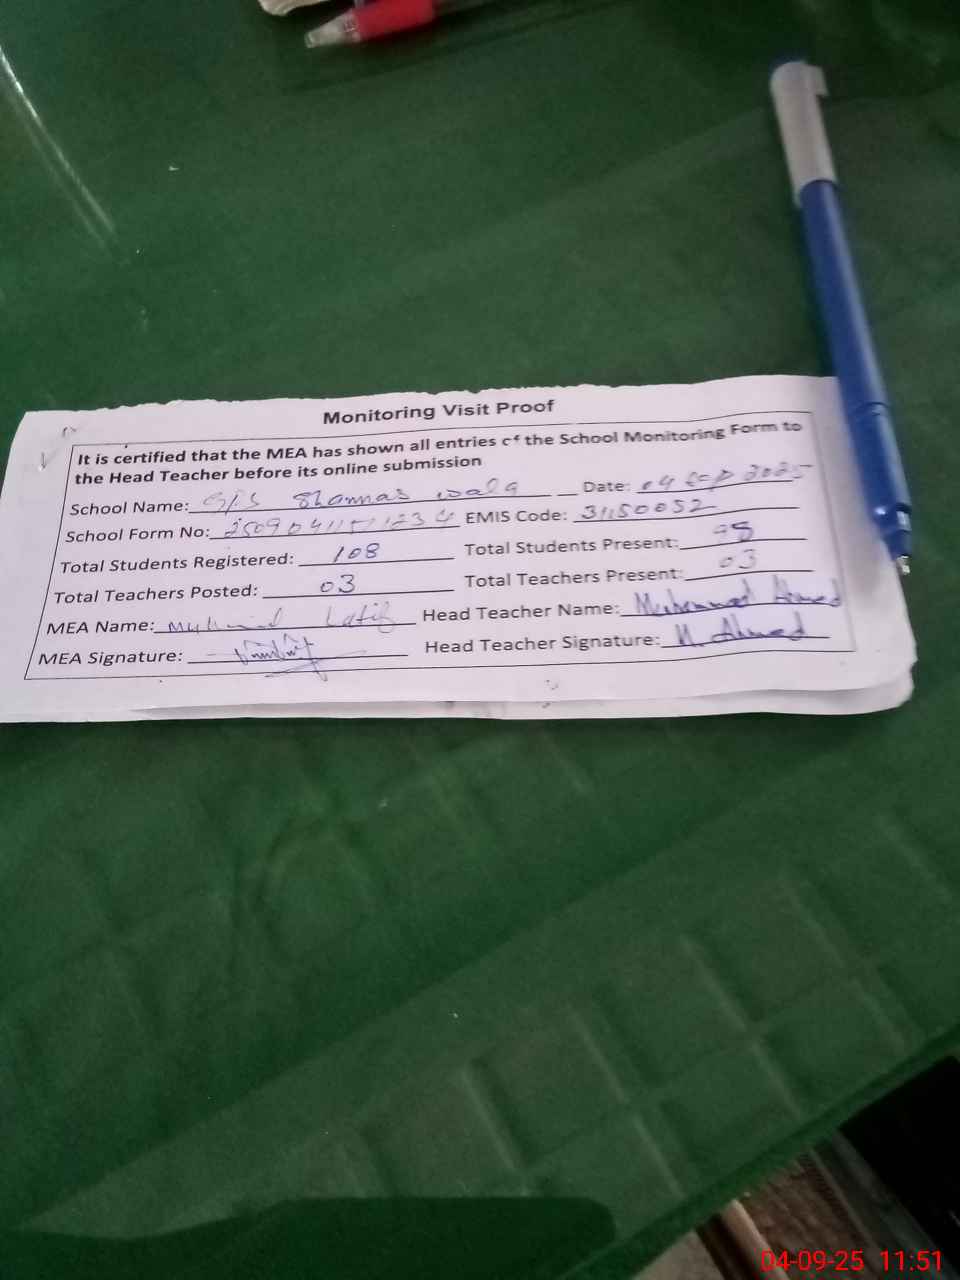 Monitoring Visit Proof
It is certified that the MEA has shown all entries of the School Monitoring Form to
the Head Teacher before its online submission
School Name: GPS Shammas wala Date: 04 Sep 2025
School Form No: EMIS Code: 31150052
Total Students Registered: 108 Total Students Present: 98
Total Teachers Posted: 03 Total Teachers Present: 03
MEA Name: Latif Head Teacher Name: Muhammad Ahmed
MEA Signature: Head Teacher Signature: M Ahmed
04-09-25 11:51